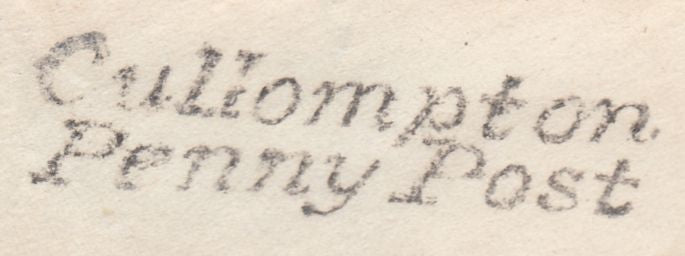 Cullompton
Penny Post